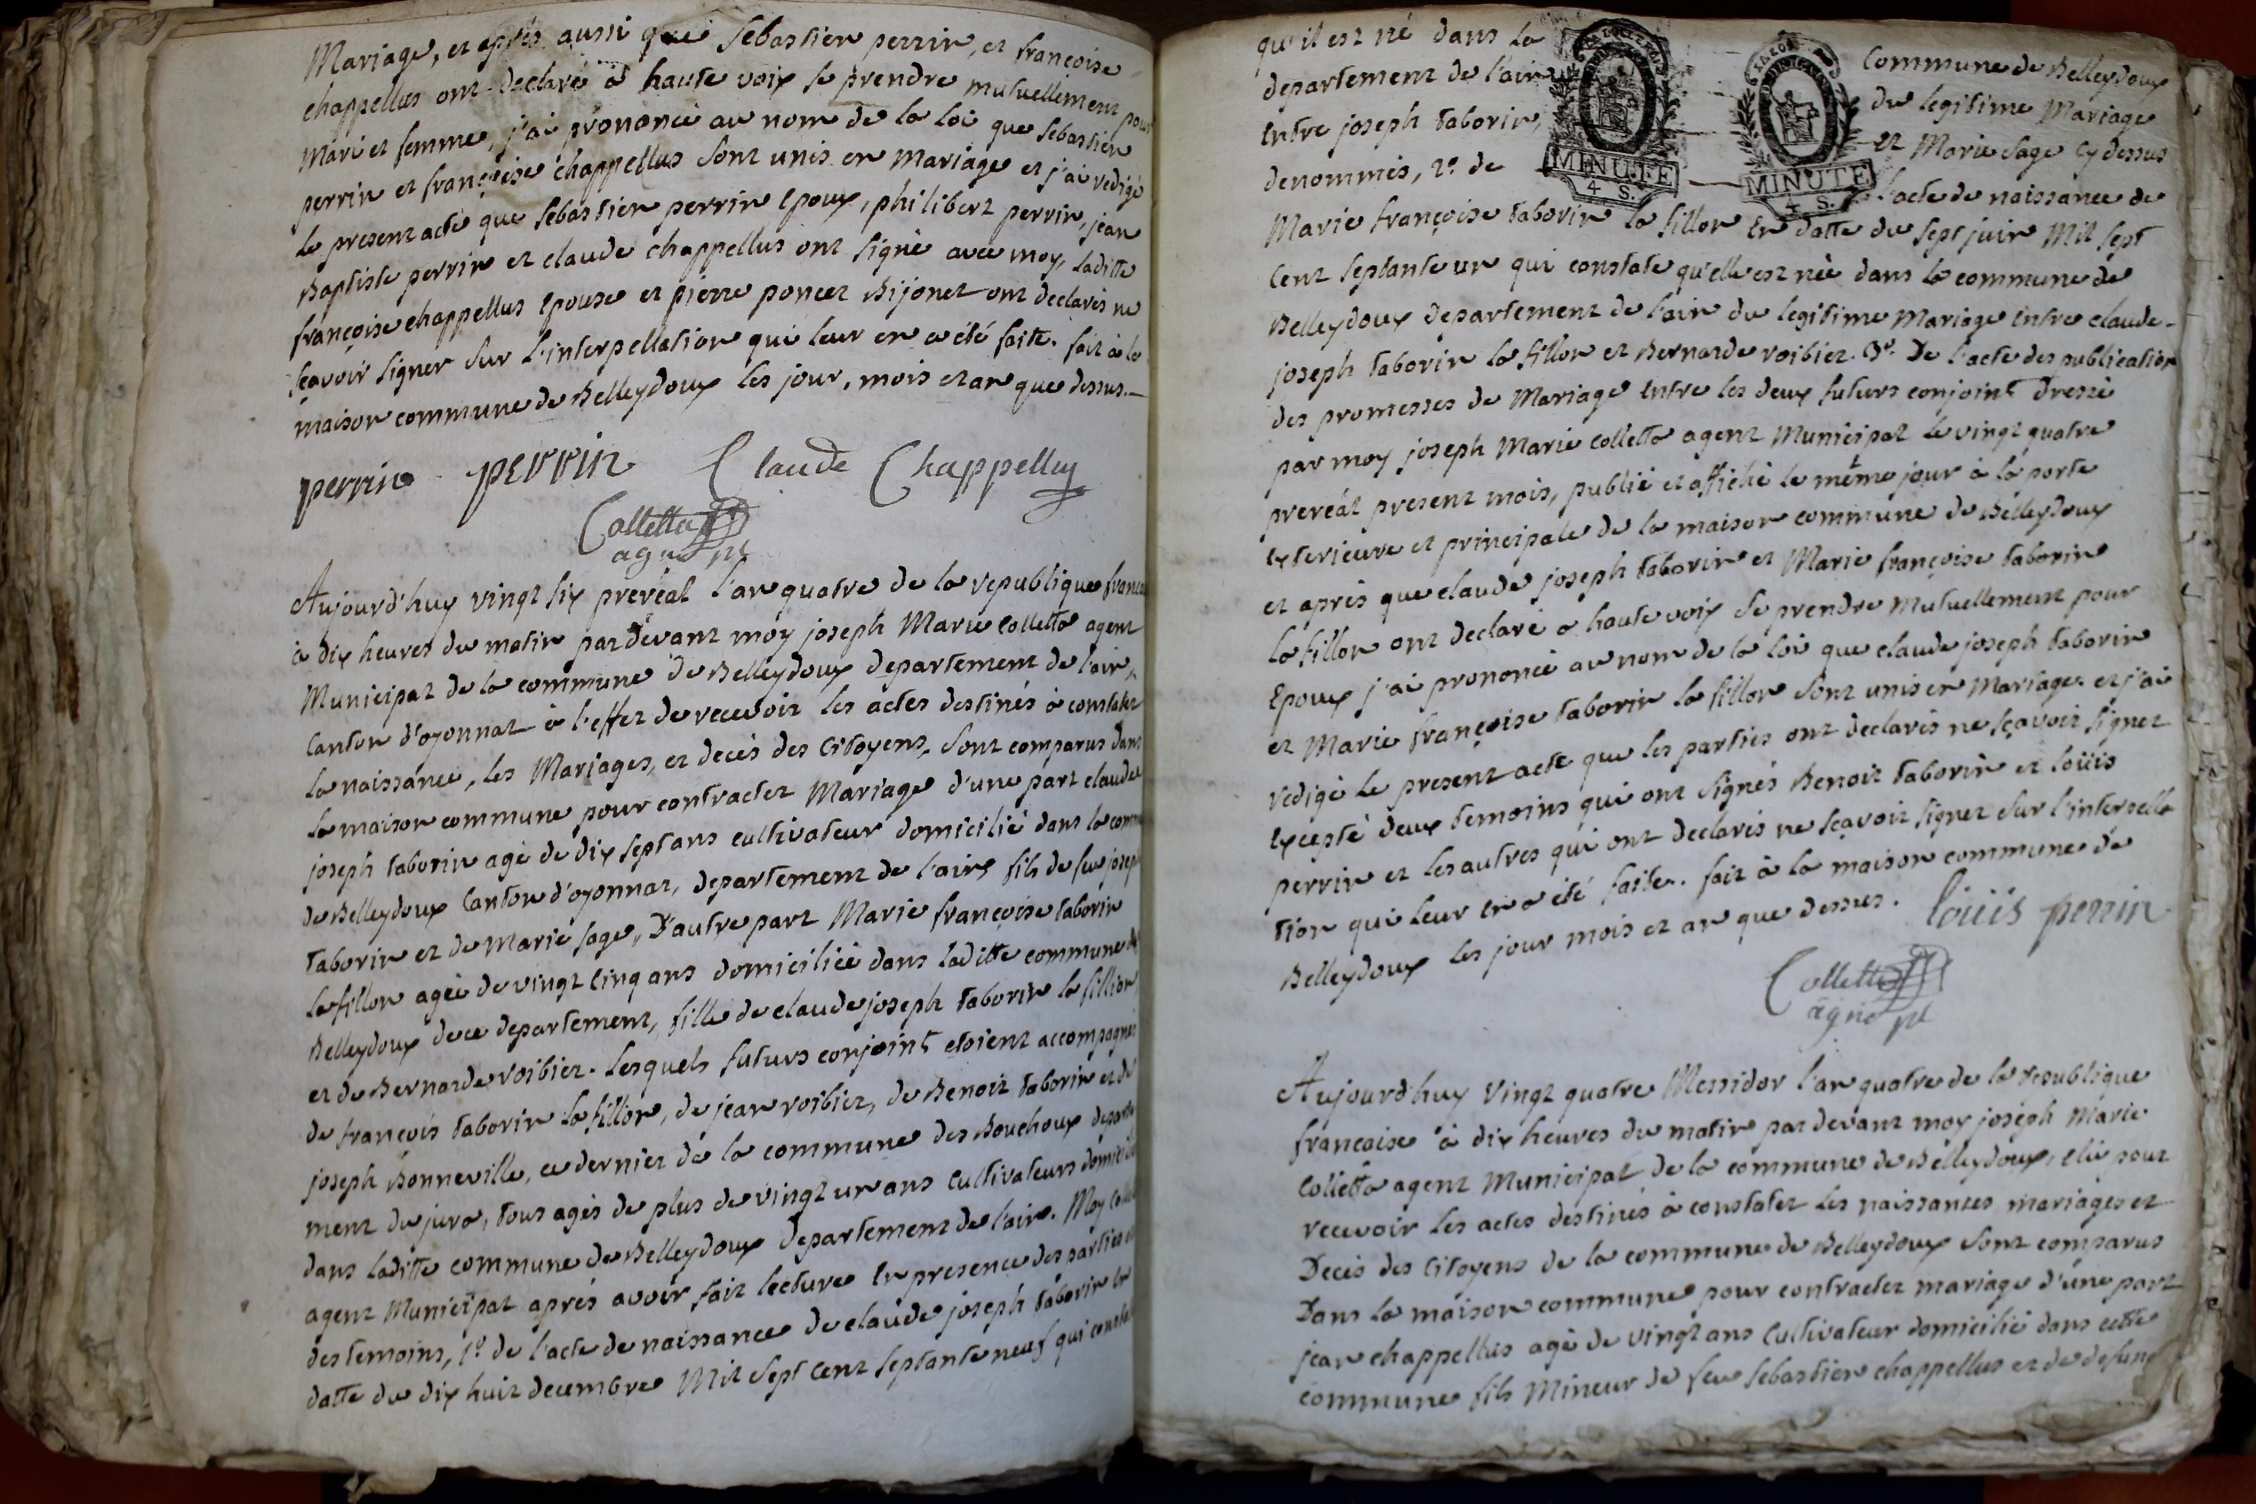 Mariage, et après aussi que Sebastien perrin, et françoise
chappellus ont declaré à haute voix se prendre mutuellement pour
mari et femme, j'ai prononcé au nom de la loi que Sebastien
perrin et françoise chappellus sont unis en mariage et j'ai redigé
le present acte que Sebastien perrin Epoux, philibert perrin, jean
Baptiste perrin et claude chappellus ont signé avec moy, laditte
françoise chappellus Epouse et pierre poncet Bijonet ont declarés ne
sçavoir signer sur l'interpellation qui leur en a été faite. fait à la
maison commune de Belleydoux les jour, mois et an que dessus.
perrin perrin Claude Chappelluy
Colletta
agent
Aujourd'huy vingt six preréal l'an quatre de la republique franca
à dix heures du matin pardevant moy joseph Marie Colletta agent
Municipal de la commune de Belleydoux departement de l'ain,
Canton d'oyonnat à l'effet de recevoir les actes destinés à constater
la naissance, les Mariages, et decès des Citoyens, sont comparus dans
la maison commune pour contracter Mariage d'une part claude
joseph taborin agé de dix sept ans cultivateur domicilié dans la comm
de Belleydoux Canton d'oyonnat, departement de l'ain, fils de feu josep
taborin et de Marie sage, D'autre part Marie françoise taborin
la fillon agée de vingt cinq ans domiciliée dans laditte commune de
Belleydoux de ce departement, fille de claude joseph taborin la fillion
et de Bernarde roibier. lesquels futurs conjoint etoient accompagnés
de françois taborin la fillon, de jean roibier, de Benoit taborin et de
joseph Bonneville, ce dernier de la commune des Bouchoux departe
ment du jura, tous agés de plus de vingt un ans Cultivateurs domiciliés
dans laditte commune de Belleydoux departement de l'ain. Moy Coll
agent Municipal après avoir fait lecture En presence des parties et
des temoins, 1º. de l'acte de naissance de claude joseph taborin En
datte du dix huit decembre Mil sept Cent septante neuf qui constate
qu'il est né dans la Commune de Belleydoux
departement de l'ain du legitime Mariage
Entre joseph taborin, et Marie sage Cy dessus
denommés, 2º. de l'acte de naissance de
MINUTE
4 S.
MINUTE
4 S.
Marie françoise taborin la fillon En datte du sept juin Mil sept
Cent septante un qui constate qu'elle est née dans la commune de
Belleydoux departement de l'ain du legitime Mariage Entre claude
joseph taborin la fillon et Bernarde roibier. 3º. De l'acte des publication
des promesses de Mariage Entre les deux futurs conjoint Dressé
par moy joseph Marie Colletta agent Municipal le vingt quatre
preréal present mois, publié et affiché le même jour à la porte
Exterieure et principale de la maison commune de Belleydoux
et après que claude joseph taborin et Marie françoise taborin
la fillon ont declaré à haute voix se prendre Mutuellement pour
Epoux j'ai prononcé au nom de la loi que claude joseph taborin
et Marie françoise taborin la fillon sont unis en Mariage et j'ai
redigé le present acte que les parties ont declarés ne sçavoir signer
Excepté deux temoins qui ont signés Benoit taborin et loüis
perrin et les autres qui ont declarés ne sçavoir signer sur l'interpella
tion qui leur En a été faite. fait à la maison commune de
Belleydoux les jour mois et an que dessus.
loüis perrin
Colletta
agent
Aujourd'huy vingt quatre Messidor l'an quatre de la republique
francaise à dix heures du matin par devant moy joseph Marie
Colletta agent Municipal de la commune de Belleydoux, élû pour
recevoir les actes destinés à constater les naissances mariages et
Decès des Citoyens de la commune de Belleydoux sont comparus
Dans la maison commune pour contracter mariage d'une part
jean chappellus agé de vingt ans Cultivateur domicilié dans cette
commune fils Mineur de feu Sebastien chappellus et de defun